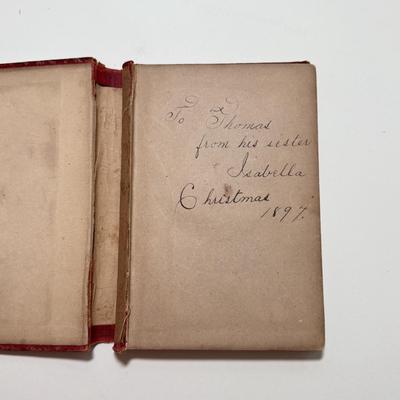 To Thomas
from his sister
Isabella
Christmas
1897.